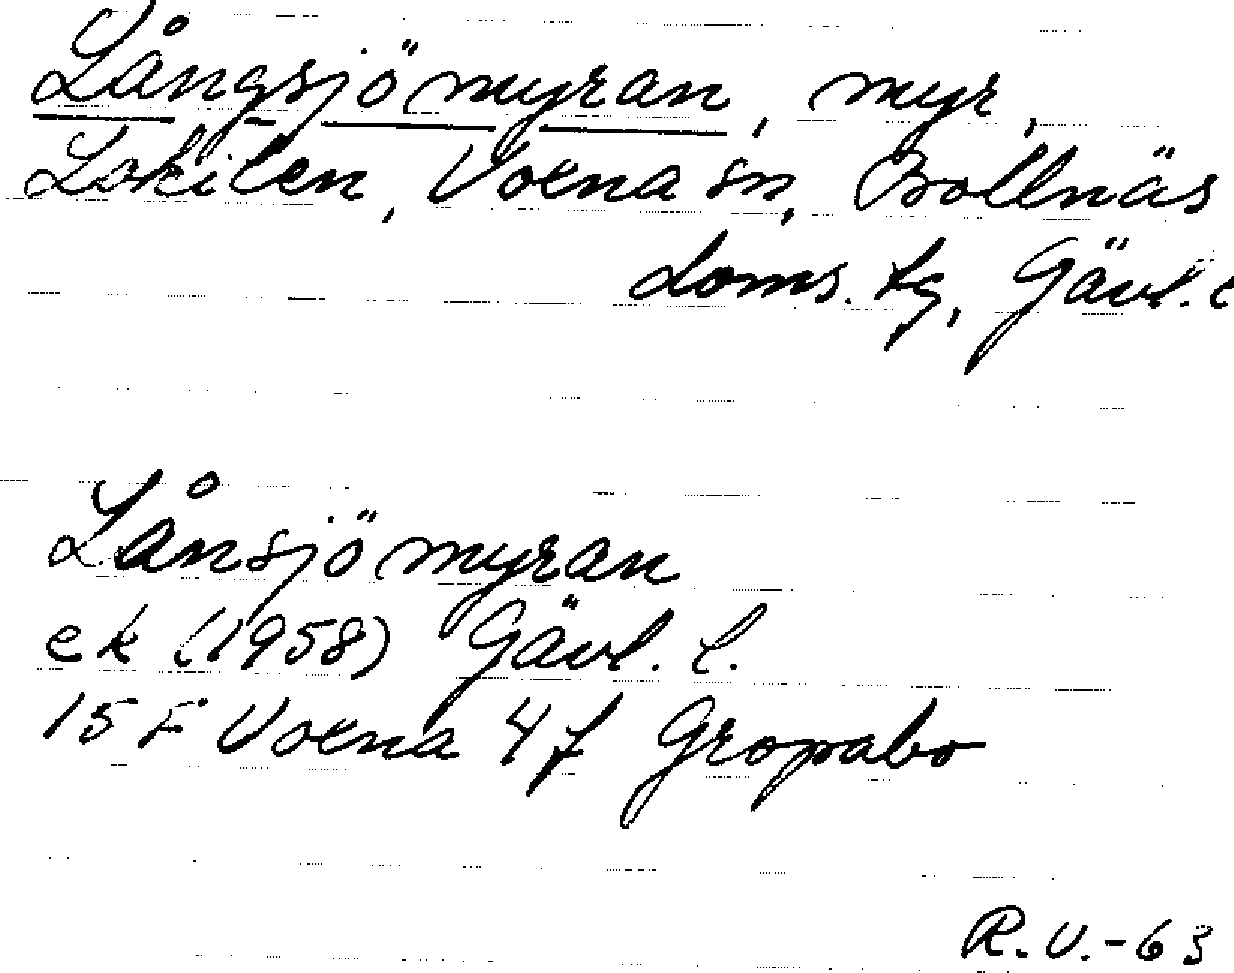 Långsjömyran, myr,
Lokilen, Voxna sn, Bollnäs
doms. tg, Gävl. l
Lånsjömyran
ek (1958) Gävl. l.
15 F Voxna 4 f Gropabo
R.V.-63